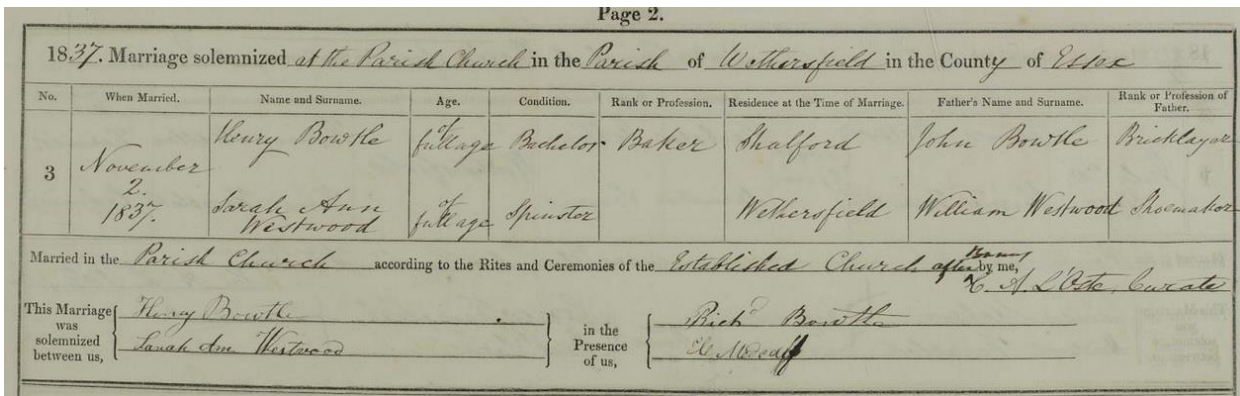 Page 2.
1837. Marriage solemnized at the Parish Church in the Parish of Wethersfield in the County of Essex
No. When Married. Name and Surname. Age. Condition. Rank or Profession. Residence at the Time of Marriage. Father's Name and Surname. Rank or Profession of Father.
3 November 2. 1837. Henry Bowtle of full age Bachelor Baker Shalford John Bowtle Bricklayer
Sarah Ann Westwood of full age Spinster Wethersfield William Westwood Shoemaker
Married in the Parish Church according to the Rites and Ceremonies of the Established Church after Banns by me,
C. A. L'Oste, Curate
This Marriage was solemnized between us, Henry Bowtle
Sarah Ann Westwood
in the Presence of us, Richd Bowtle